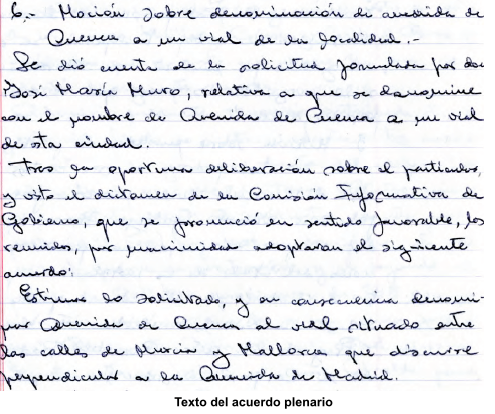 6.- Moción sobre denominación de avenida de
Cuenca a un vial de la localidad.-
Se dió cuenta de la solicitud formulada por don
José María Muro, relativa a que se denomine
con el nombre de Avenida de Cuenca a un vial
de esta ciudad.
Tras la oportuna deliberación sobre el particular,
y visto el dictamen de la Comisión Informativa de
Gobierno, que se pronunció en sentido favorable, los
reunidos, por unanimidad adoptaron el siguiente
acuerdo:
Estimar lo solicitado, y en consecuencia denomi-
nar Avenida de Cuenca al vial situado entre
las calles de Murcia y Mallorca que discurre
perpendicular a la Avenida de Madrid.
Texto del acuerdo plenario